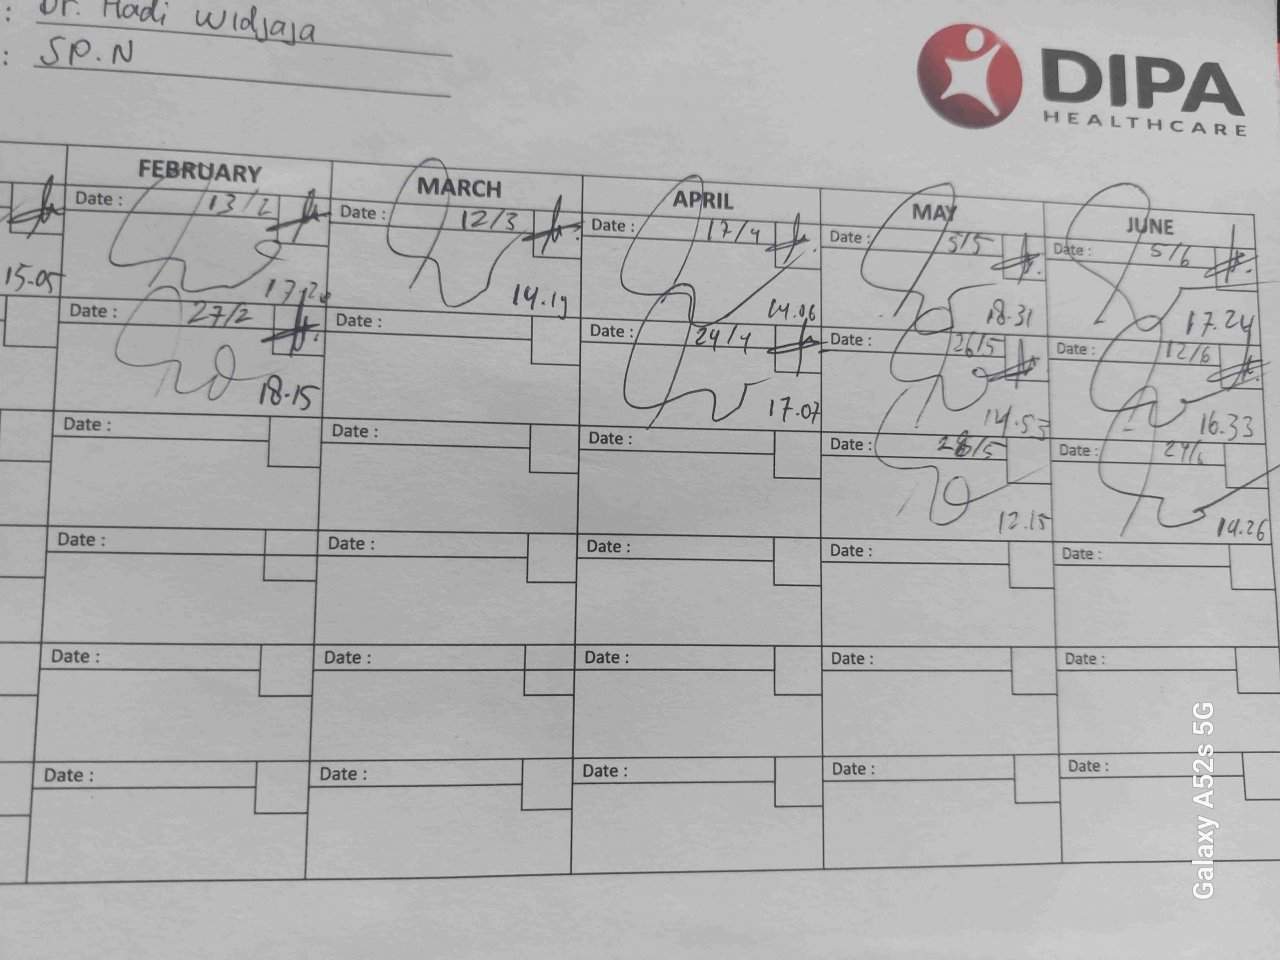 : Dr. Hadi Widjaja
: SP.N
DIPA
HEALTHCARE
FEBRUARY MARCH APRIL MAY JUNE
Date : 13/2 Date : 12/3 Date : 17/4 Date : 5/5 Date : 5/6
15.05 14.19 14.06 18.31 17.24
Date : 27/2 Date : Date : 24/4 Date : 26/5 Date : 12/6
18.15 17.07 14.53 16.33
Date : Date : Date : Date : 28/5 Date : 24/6
12.15 14.26
Date : Date : Date : Date : Date :
Date : Date : Date : Date : Date :
Date : Date : Date : Date : Date :
Galaxy A52s 5G